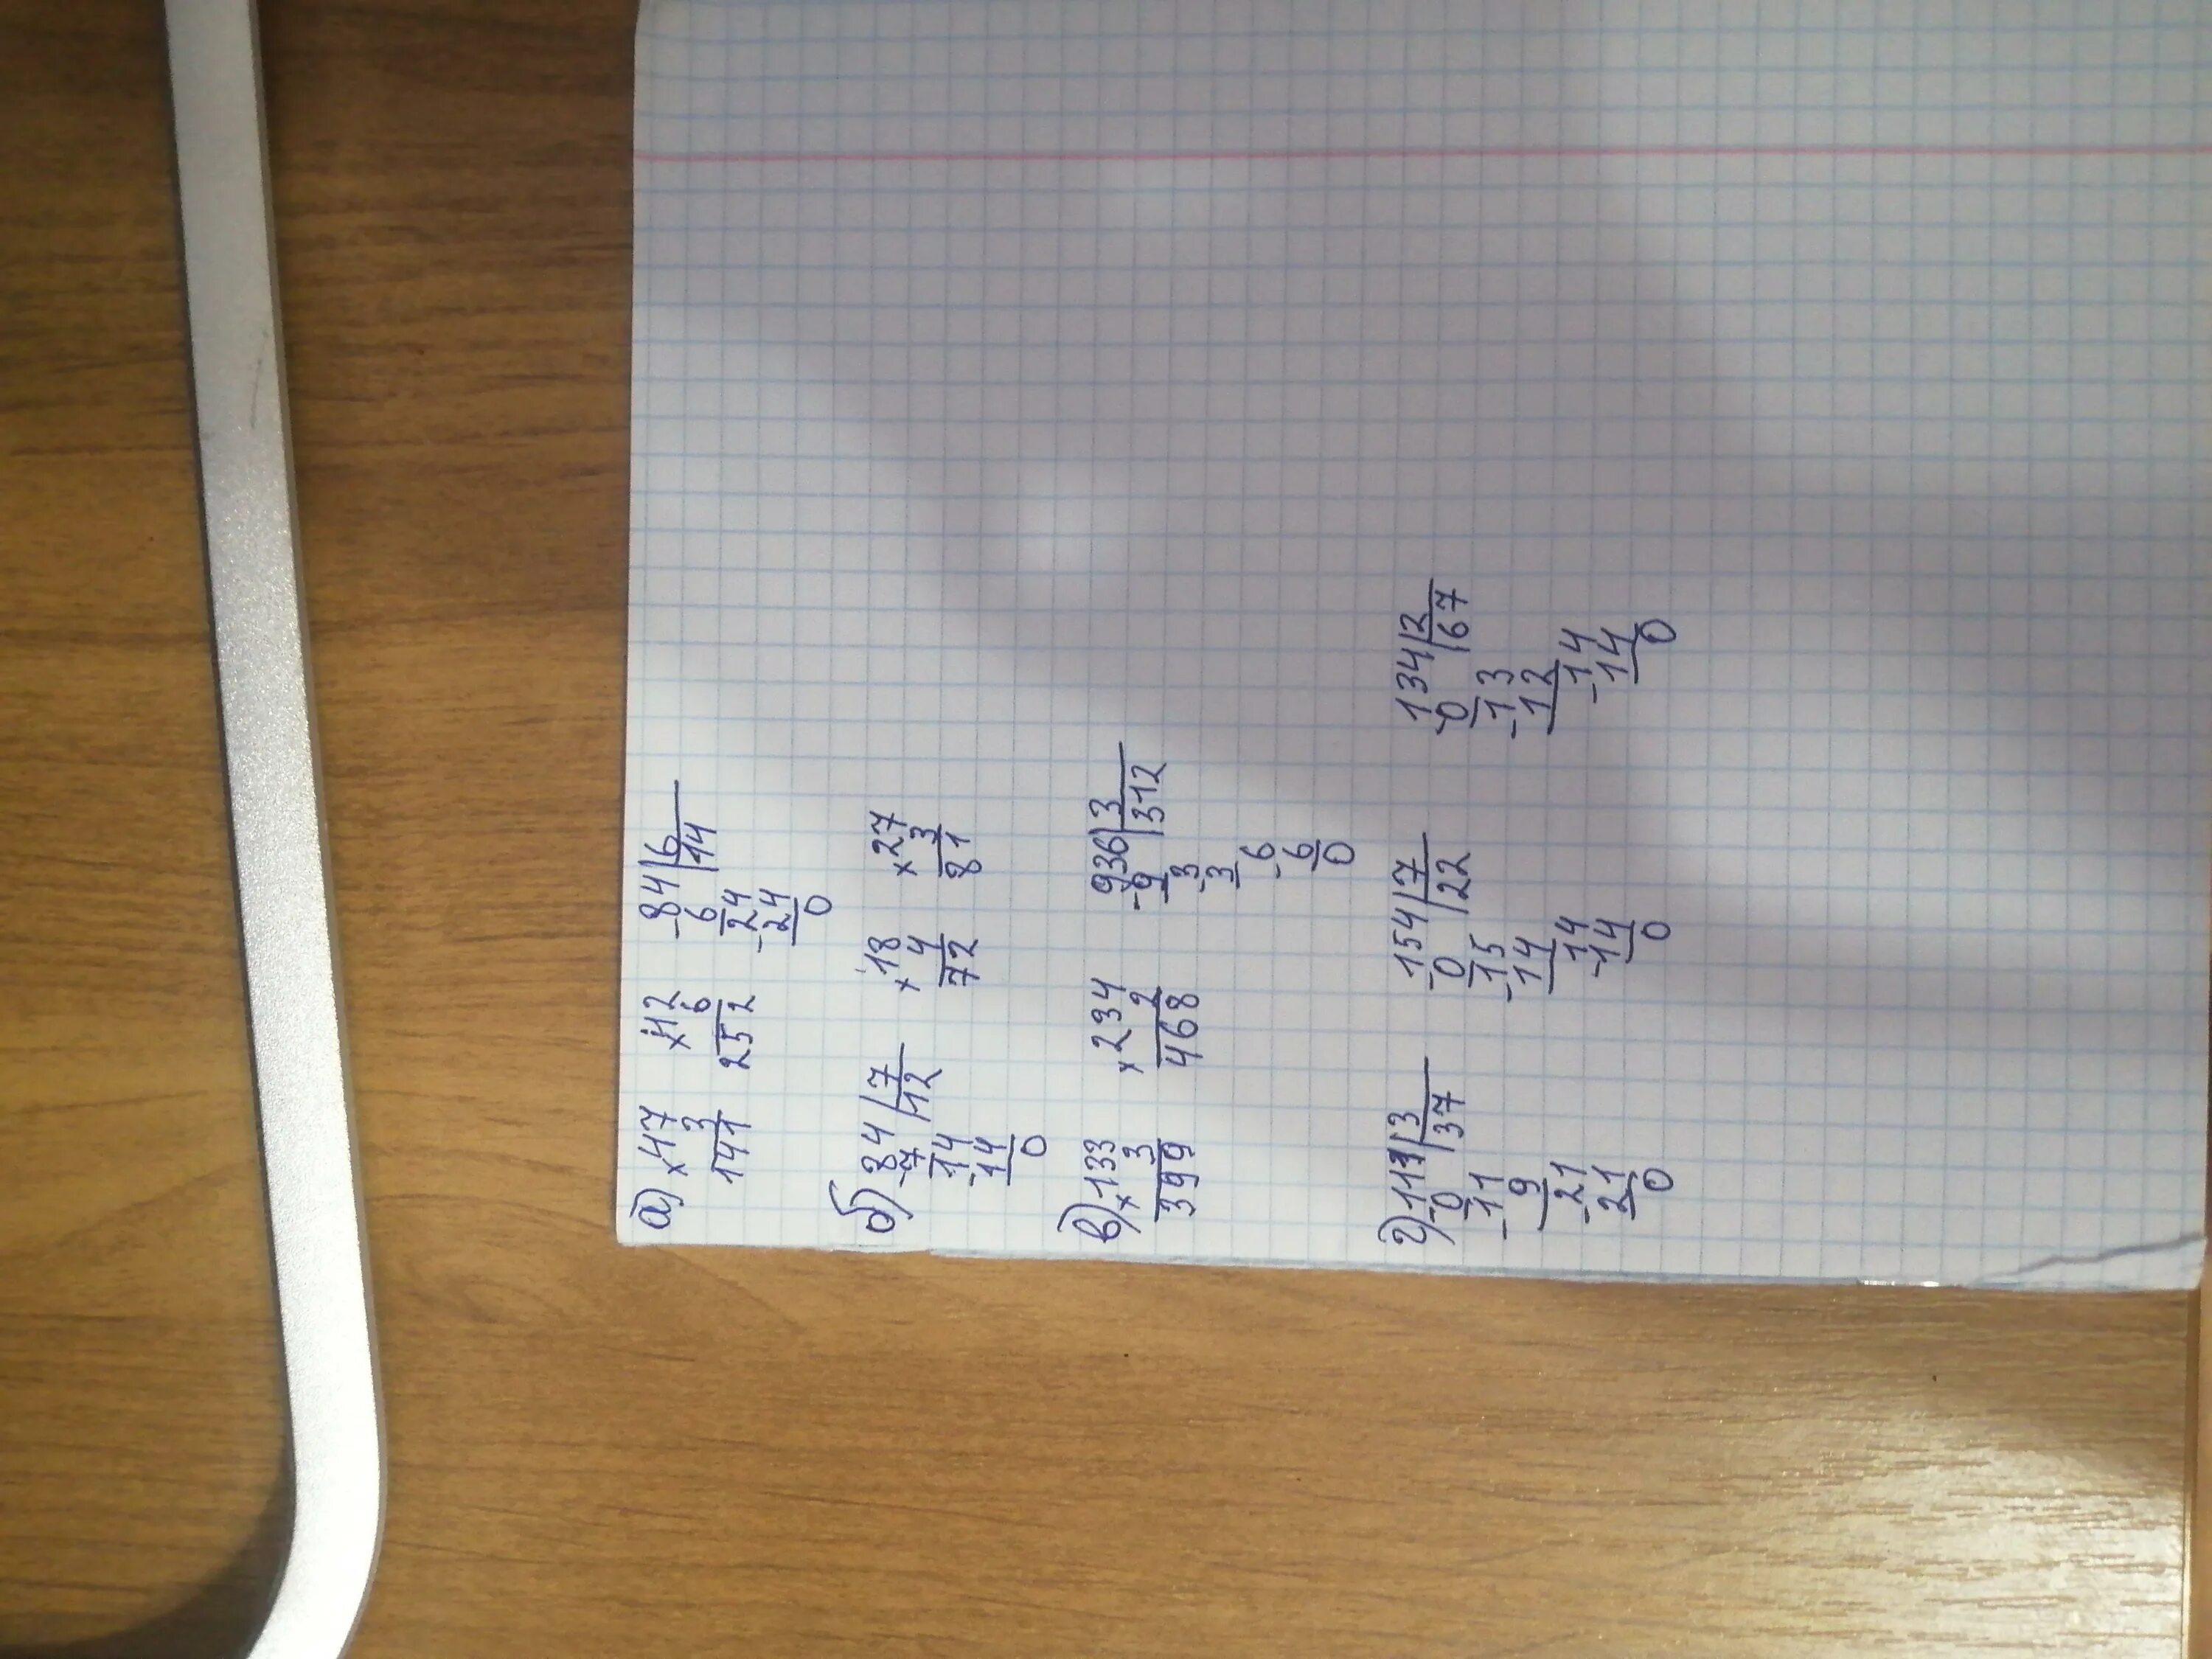 а) ×47 ×42 -84|6
3 6 6 14
141 252 -24
24
0
б) -84|7 ×18 ×27
7 12 4 3
-14 72 81
14
0
в) ×133 ×234 -936|3
3 2 9 312
399 468 -3
3
-6
6
0
г) -111|3 -154|7 -134|2
0 37 0 22 0 67
-11 -15 -13
9 14 12
-21 -14 -14
21 14 14
0 0 0